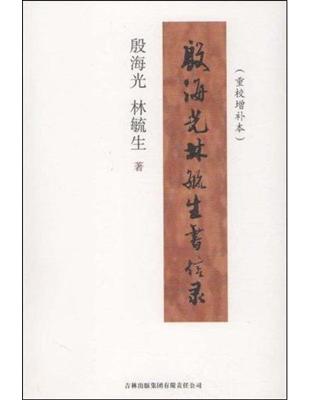 殷海光林毓生书信录
(重校增补本)
殷海光 林毓生 著
吉林出版集团有限责任公司